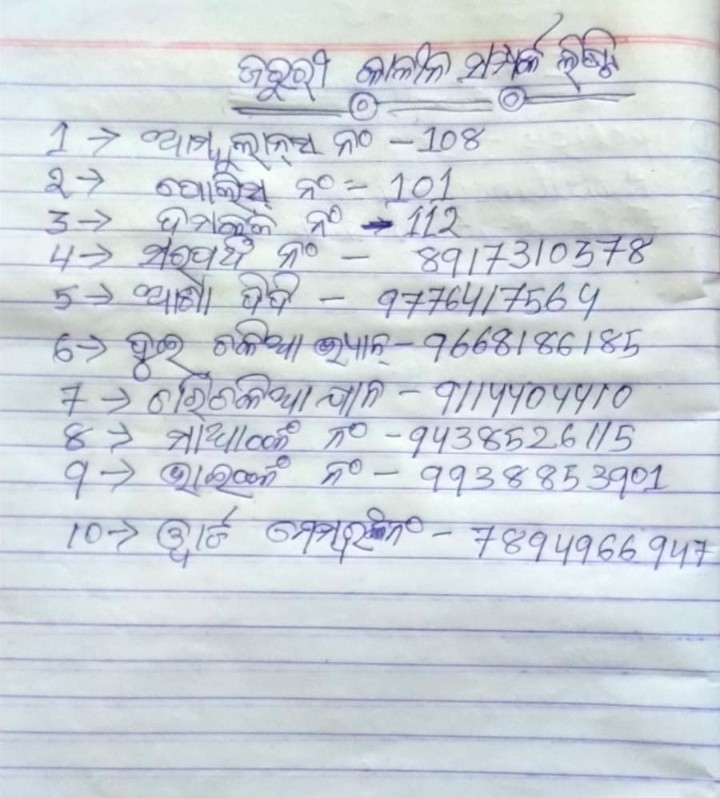 ଜରୁରୀ କାଳୀନ ସମ୍ପର୍କ ଲିଷ୍ଟ
1 → ଆମ୍ବୁଲାନ୍ସ ନଂ - 108
2 → ପୋଲିସ୍ ନଂ - 101
3 → ଦମକଳ ନଂ → 112
4 → ସରପଞ୍ଚ ନଂ - 8917310378
5 → ଆଶା ଦିଦି - 9776417564
6 → ଦୁଇ ଚକିଆ ଭ୍ୟାନ୍ - 9668186185
7 → ଚାରିଚକିଆ ଯାନ - 9114404410
8 → ବାପାଙ୍କ ନଂ - 9438526115
9 → ଭାଇଙ୍କ ନଂ - 9938853901
10 → ୱାର୍ଡ ମେମ୍ବର ନଂ - 7894966947